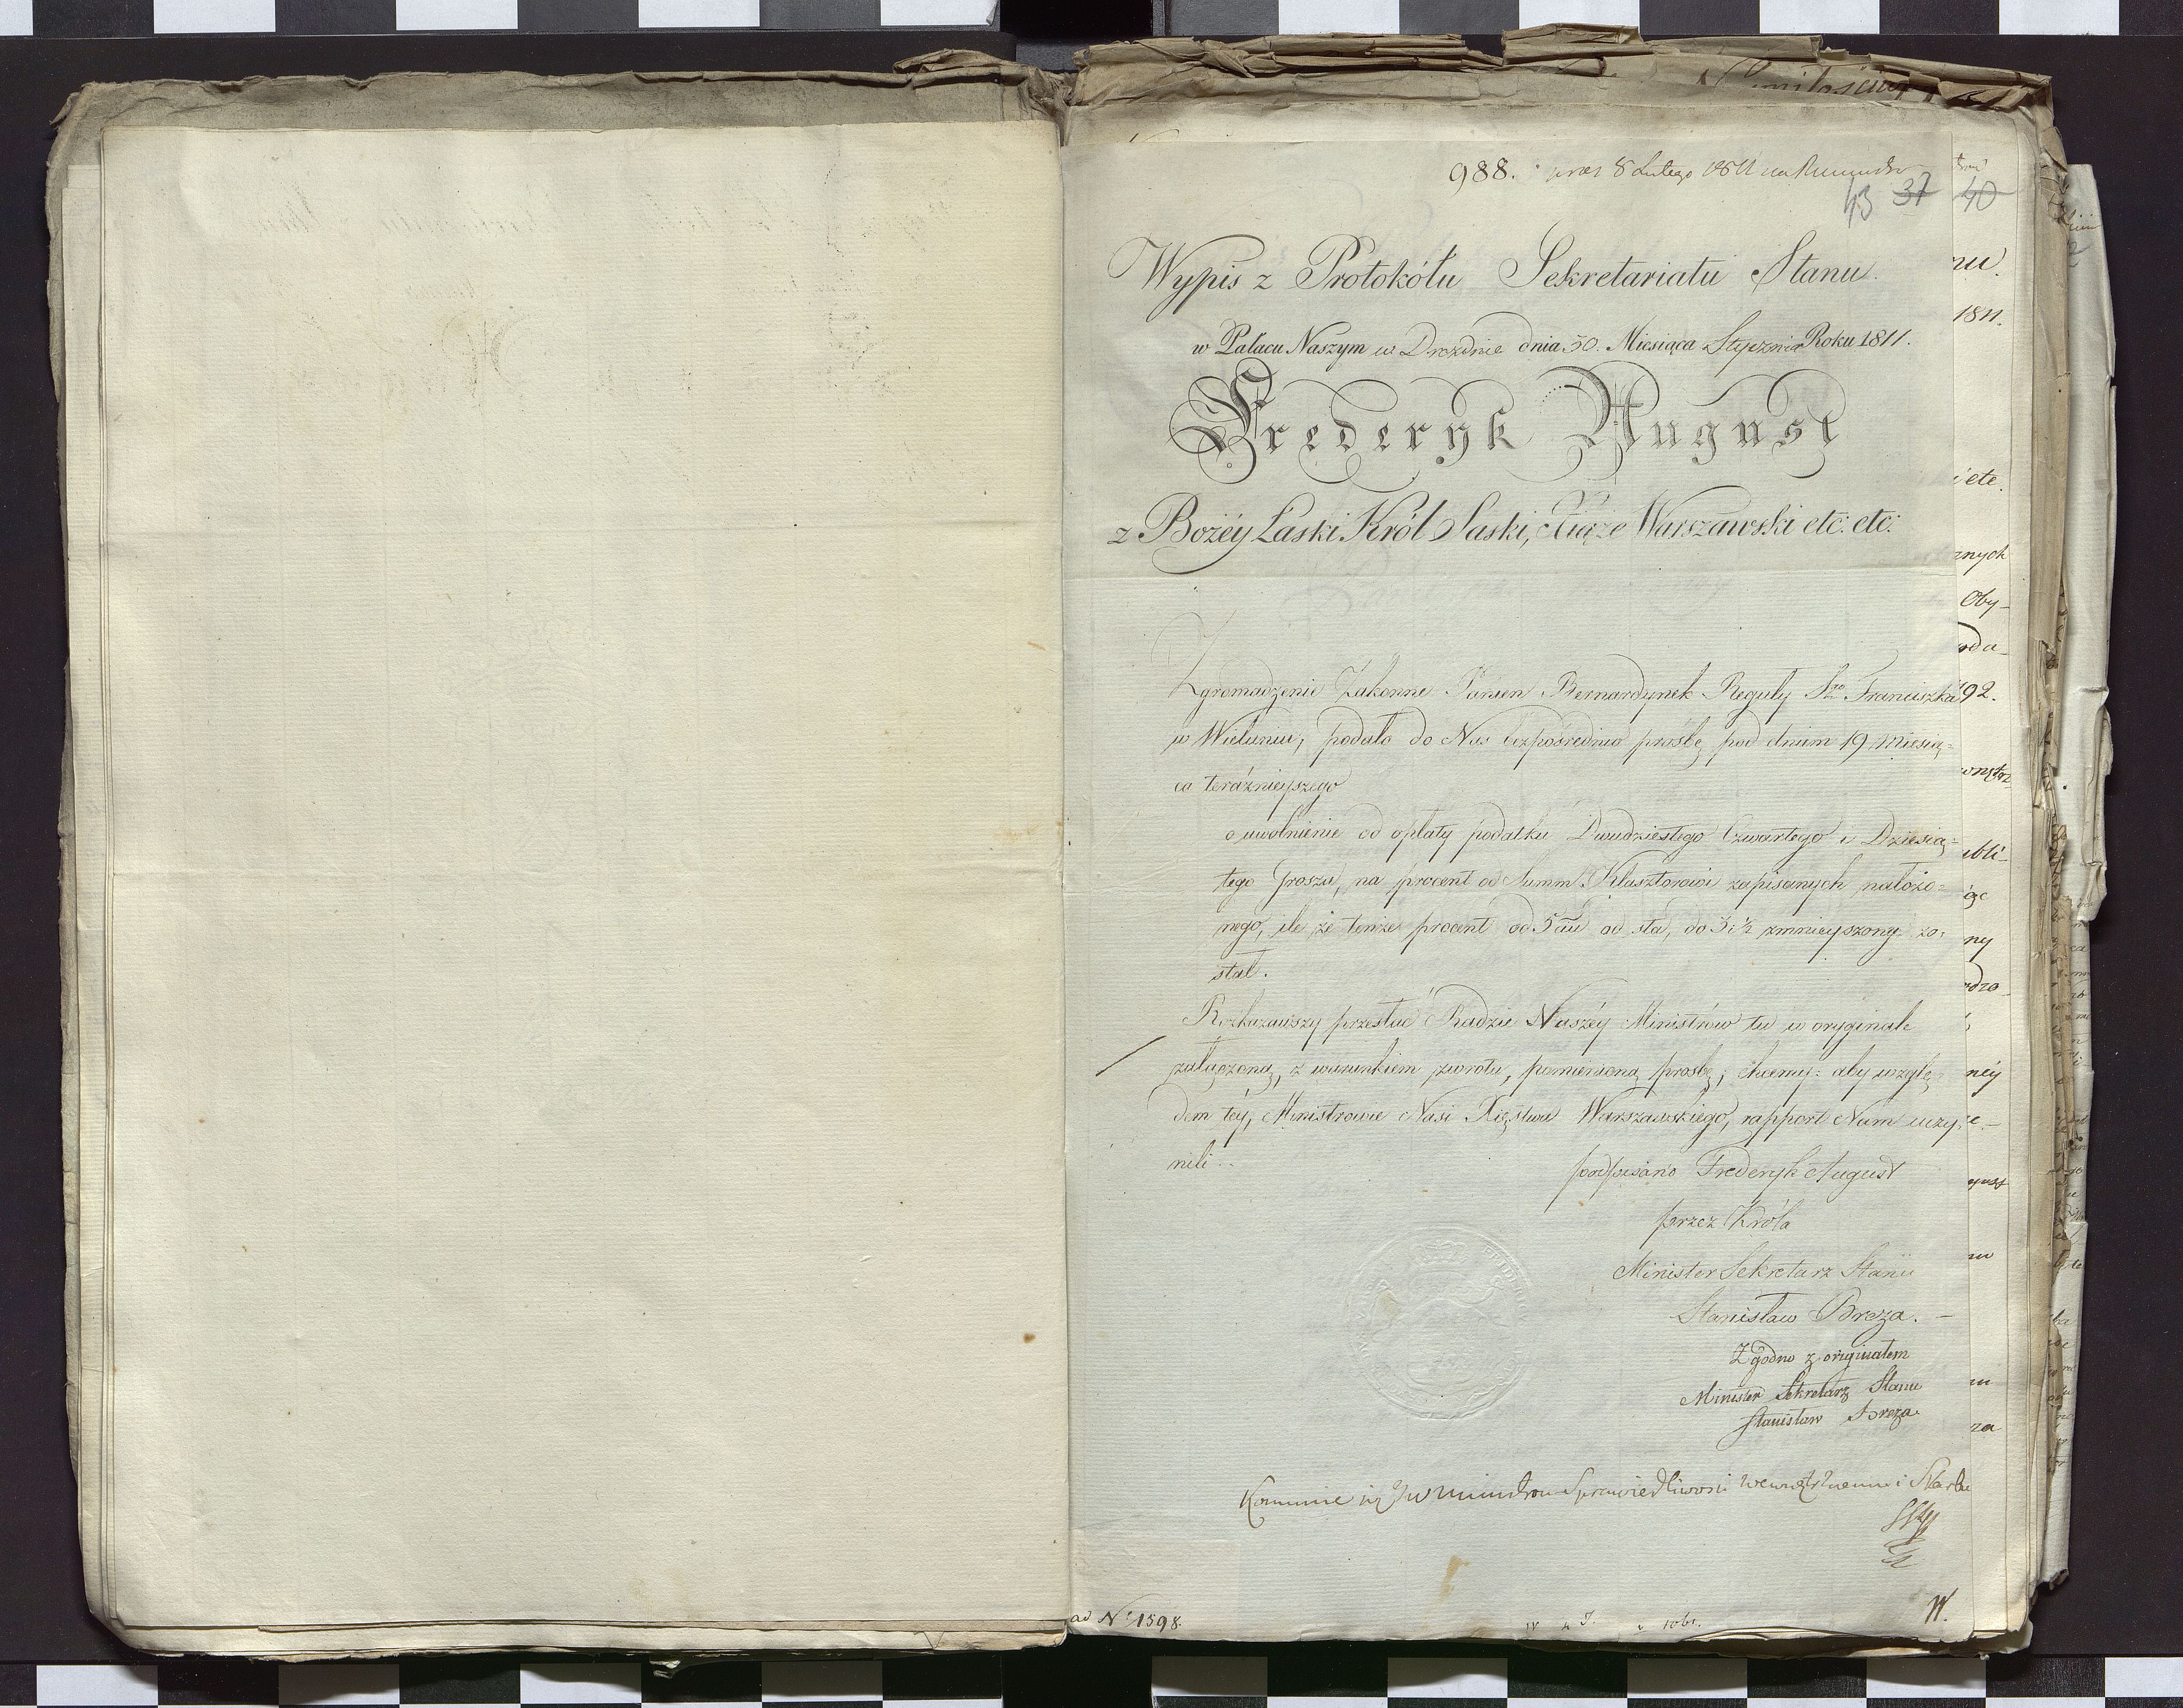 988. 8 Lutego 1811
43 37 40
Wypis z Protokółu Sekretariatu Stanu.
w Pałacu Naszym w Dreźdnie dnia 30. Miesiąca Stycznia Roku 1811.
Frederyk August
z Bożéy Łaski Król Saski, Xiąże Warszawski etc: etc:
Zgromadzenie Zakonne Panien Bernardynek Reguły Sgo Franciszka
w Wieluniu, podało do Nas bezpośrednio prośbę, pod dniem 19 miesią=
ca teraźnieyszego
o uwolnienie od opłaty podatku Dwudziestego Czwartego i Dziesią=
tego Grosza, na procent od Summ Klasztorowi zapisanych nałożo=
nego, ile że tenże procent od 5ciu od sta, do 3 1/2 zmnieyszony zo=
stał.
Rozkazawszy przesłać Radzie Naszéy Ministrów tu w oryginale
załączoną, z warunkiem zwrotu, pomienioną prośbę; chcemy: aby wzglę=
dem téy, Ministrowie Nasi Xięstwa Warszawskiego, rapport Nam uczy=
nili.
podpisano Frederyk August
przez Króla
Minister Sekretarz Stanu
Stanisław Breza.
Zgodno z originałem
Minister Sekretarz Stanu
Stanisław Breza
Sprawiedliwości Wewnętrznemu i Skarbu
ad Nr 1598.
W.
nu.
1811.
i etc.
znych
Oby-
oda-
192.
wnętrz
ubli-
ny
odzo-
néy
gust
za